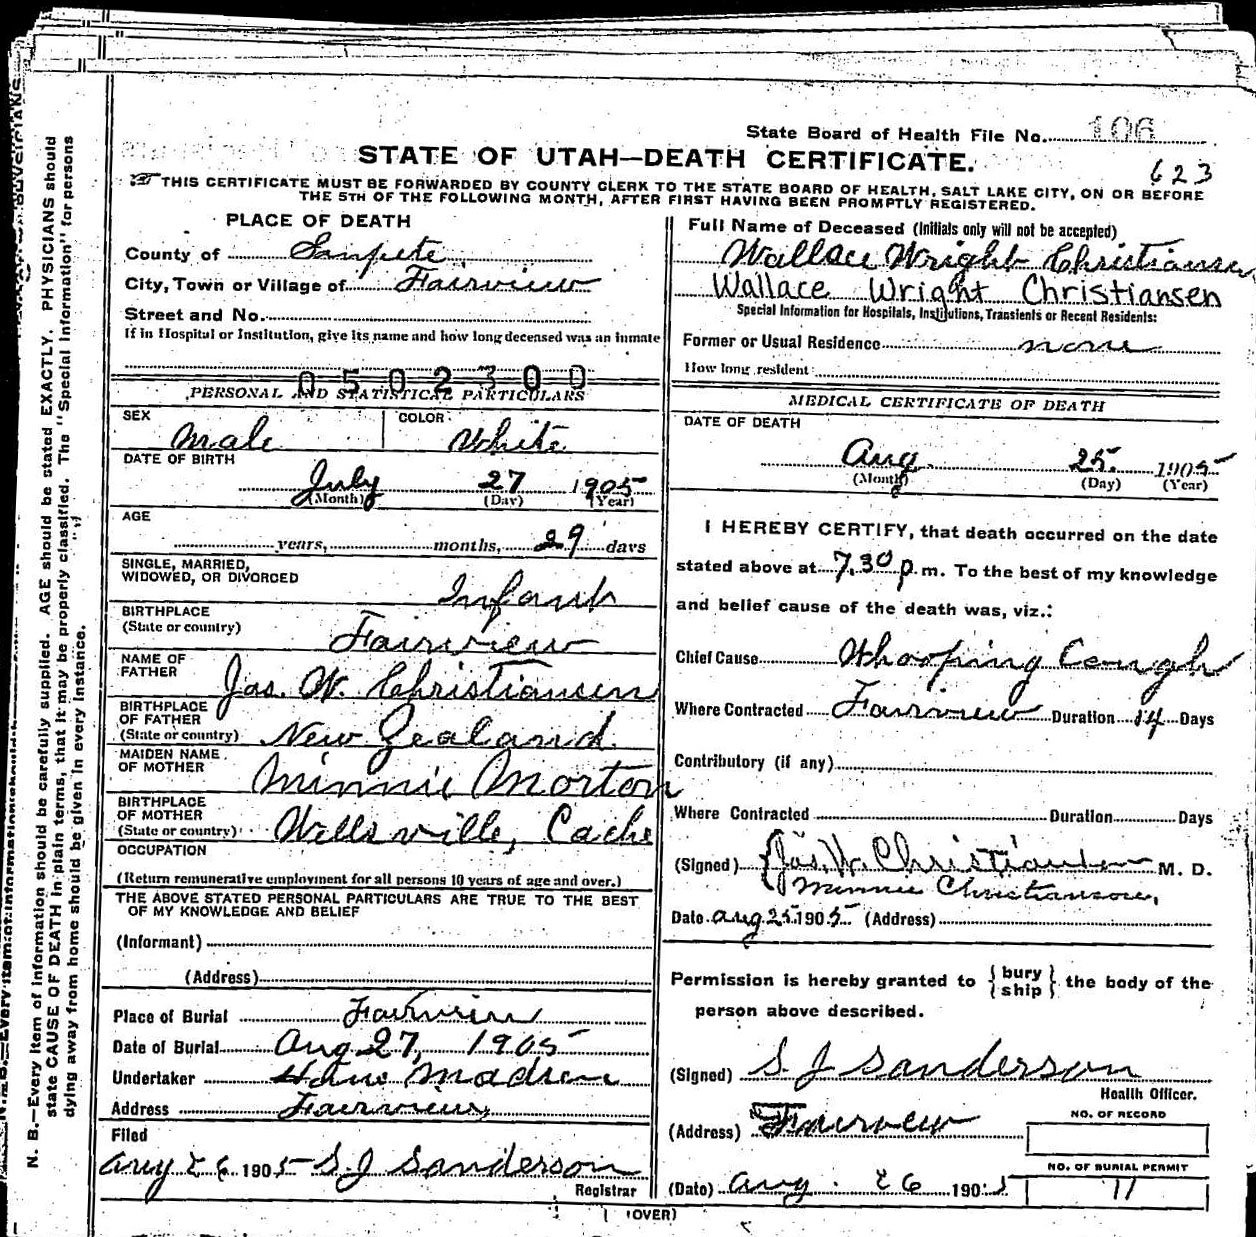 State Board of Health File No. 106
STATE OF UTAH—DEATH CERTIFICATE.
623
THIS CERTIFICATE MUST BE FORWARDED BY COUNTY CLERK TO THE STATE BOARD OF HEALTH, SALT LAKE CITY, ON OR BEFORE
THE 5TH OF THE FOLLOWING MONTH, AFTER FIRST HAVING BEEN PROMPTLY REGISTERED.
PLACE OF DEATH
County of Sanpete
City, Town or Village of Fairview
Street and No.
If in Hospital or Institution, give its name and how long deceased was an inmate
0502300
PERSONAL AND STATISTICAL PARTICULARS
SEX Male COLOR White
DATE OF BIRTH
July 27 1905
(Month) (Day) (Year)
AGE
years, months, 29 days
SINGLE, MARRIED,
WIDOWED, OR DIVORCED Infant
BIRTHPLACE
(State or country) Fairview
NAME OF
FATHER Jas. W. Christiansen
BIRTHPLACE
OF FATHER
(State or country) New Zealand.
MAIDEN NAME
OF MOTHER Minnie Morton
BIRTHPLACE
OF MOTHER
(State or country) Wellsville, Cache
OCCUPATION
(Return remunerative employment for all persons 10 years of age and over.)
THE ABOVE STATED PERSONAL PARTICULARS ARE TRUE TO THE BEST
OF MY KNOWLEDGE AND BELIEF
(Informant)
(Address)
Place of Burial Fairview
Date of Burial Aug 27, 1905
Undertaker Hans Madsen
Address Fairview
Filed
Aug 26 1905 S. J Sanderson
Registrar
Full Name of Deceased (Initials only will not be accepted)
Wallace Wright Christiansen
Wallace Wright Christiansen
Special Information for Hospitals, Institutions, Transients or Recent Residents:
Former or Usual Residence none
How long resident
MEDICAL CERTIFICATE OF DEATH
DATE OF DEATH
Aug. 25 1905
(Month) (Day) (Year)
I HEREBY CERTIFY, that death occurred on the date
stated above at 7.30 p. m. To the best of my knowledge
and belief cause of the death was, viz.:
Chief Cause Whooping Cough
Where Contracted Fairview Duration 14 Days
Contributory (if any)
Where Contracted Duration Days
(Signed) Jas. W. Christiansen M. D.
Minnie Christianson,
Date Aug 25 1905 (Address)
Permission is hereby granted to {bury
ship} the body of the
person above described.
(Signed) S. J Sanderson
Health Officer.
(Address) Fairview
NO. OF RECORD
NO. OF BURIAL PERMIT
(Date) Aug. 26 1905 11
(OVER)
N. B.—Every item of information should be carefully supplied. AGE should be stated EXACTLY. PHYSICIANS should
state CAUSE OF DEATH in plain terms, that it may be properly classified. The "Special Information" for persons
dying away from home should be given in every instance.